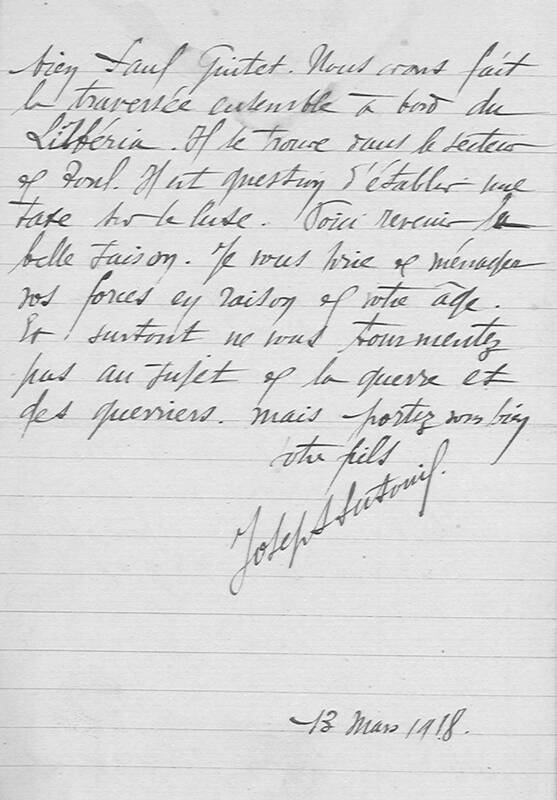 bien sauf Guitet. Nous avons fait
la traversée ensemble à bord du
Libéria. Il se trouve dans le secteur
de Toul. Il est question d'établir une
taxe sur le luxe. Voici revenir la
belle saison. Je vous prie de ménager
vos forces en raison de votre âge.
Et surtout ne vous tourmentez
pas au sujet de la guerre et
des guerriers. mais portez vous bien
votre fils
Joseph
13 Mars 1918.